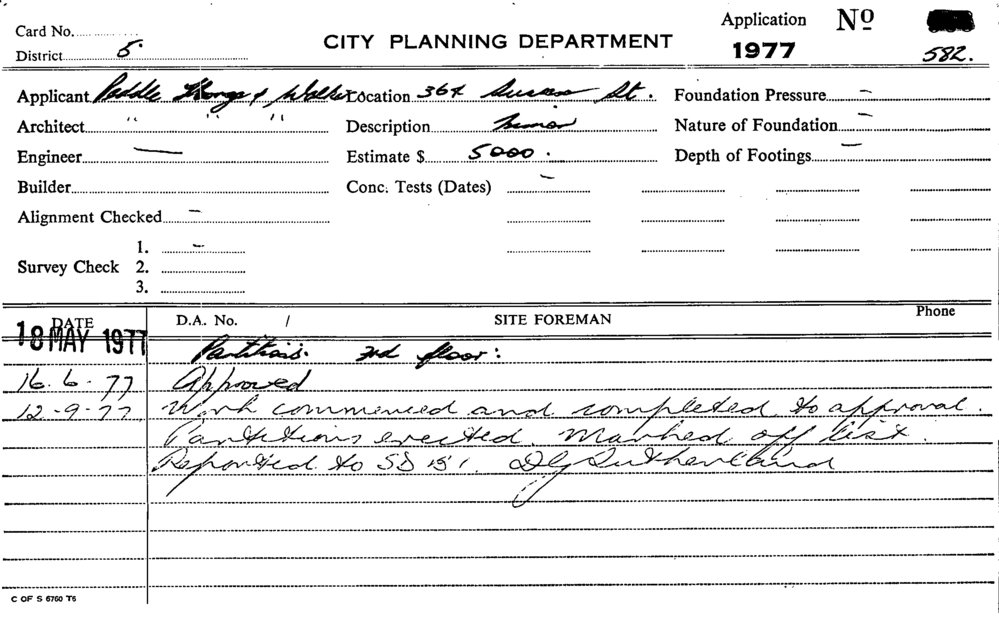 Card No.
Application No
District 5. CITY PLANNING DEPARTMENT 1977 582.
Applicant Paddle Thorp & Walker Location 364 Sussex St. Foundation Pressure –
Architect " " " Description Minor Nature of Foundation –
Engineer — Estimate $ 5000. Depth of Footings –
Builder Conc. Tests (Dates) –
Alignment Checked –
1. –
Survey Check 2.
3.
DATE D.A. No. / SITE FOREMAN Phone
18 MAY 1977
Partitions. 3rd floor:
16. 6. 77 Approved
12-9-77 Work commenced and completed to approval.
Partitions erected. Marked off list.
Reported to SD DG Sutherland
C OF S 6760 T6